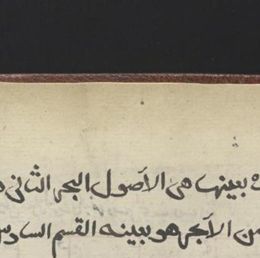 بعينها هى الأصول البحر الثانى
من الأبحر هو بعينه القسم السادس